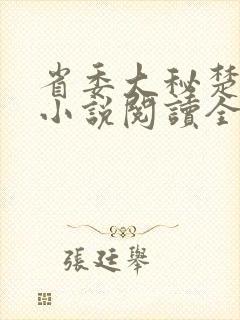 省委大秘楚
小說閱讀全
張廷舉